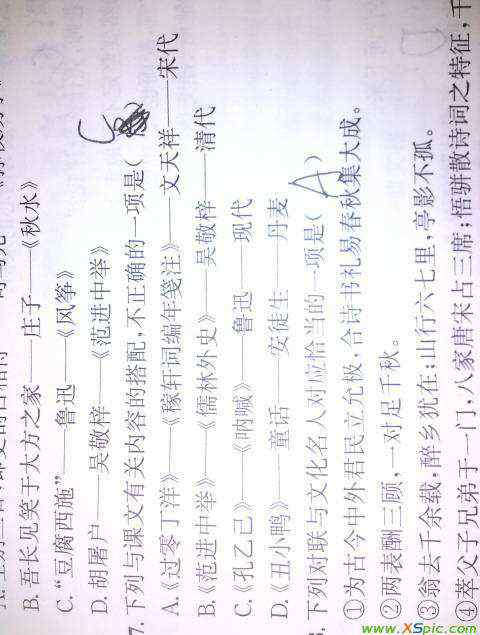 B. 吾长见笑于大方之家——庄子——《秋水》
C. “豆腐西施”——鲁迅——《风筝》
D. 胡屠户——吴敬梓——《范进中举》
7. 下列与课文有关内容的搭配,不正确的一项是( C )
A.《过零丁洋》——《稼轩词编年笺注》——文天祥——宋代
B.《范进中举》——《儒林外史》——吴敬梓——清代
C.《孔乙己》——《呐喊》——鲁迅——现代
D.《丑小鸭》——童话——安徒生——丹麦
下列对联与文化名人对应恰当的一项是( A )
①为古今中外君民立允极,合诗书礼易春秋集大成。
②两表酬三顾,一对足千秋。
③翁去千余载,醉乡犹在;山行六七里,亭影不孤。
④萃父子兄弟于一门,八家唐宋占三席;悟骈散诗词之特征,千
www.XSpic.com